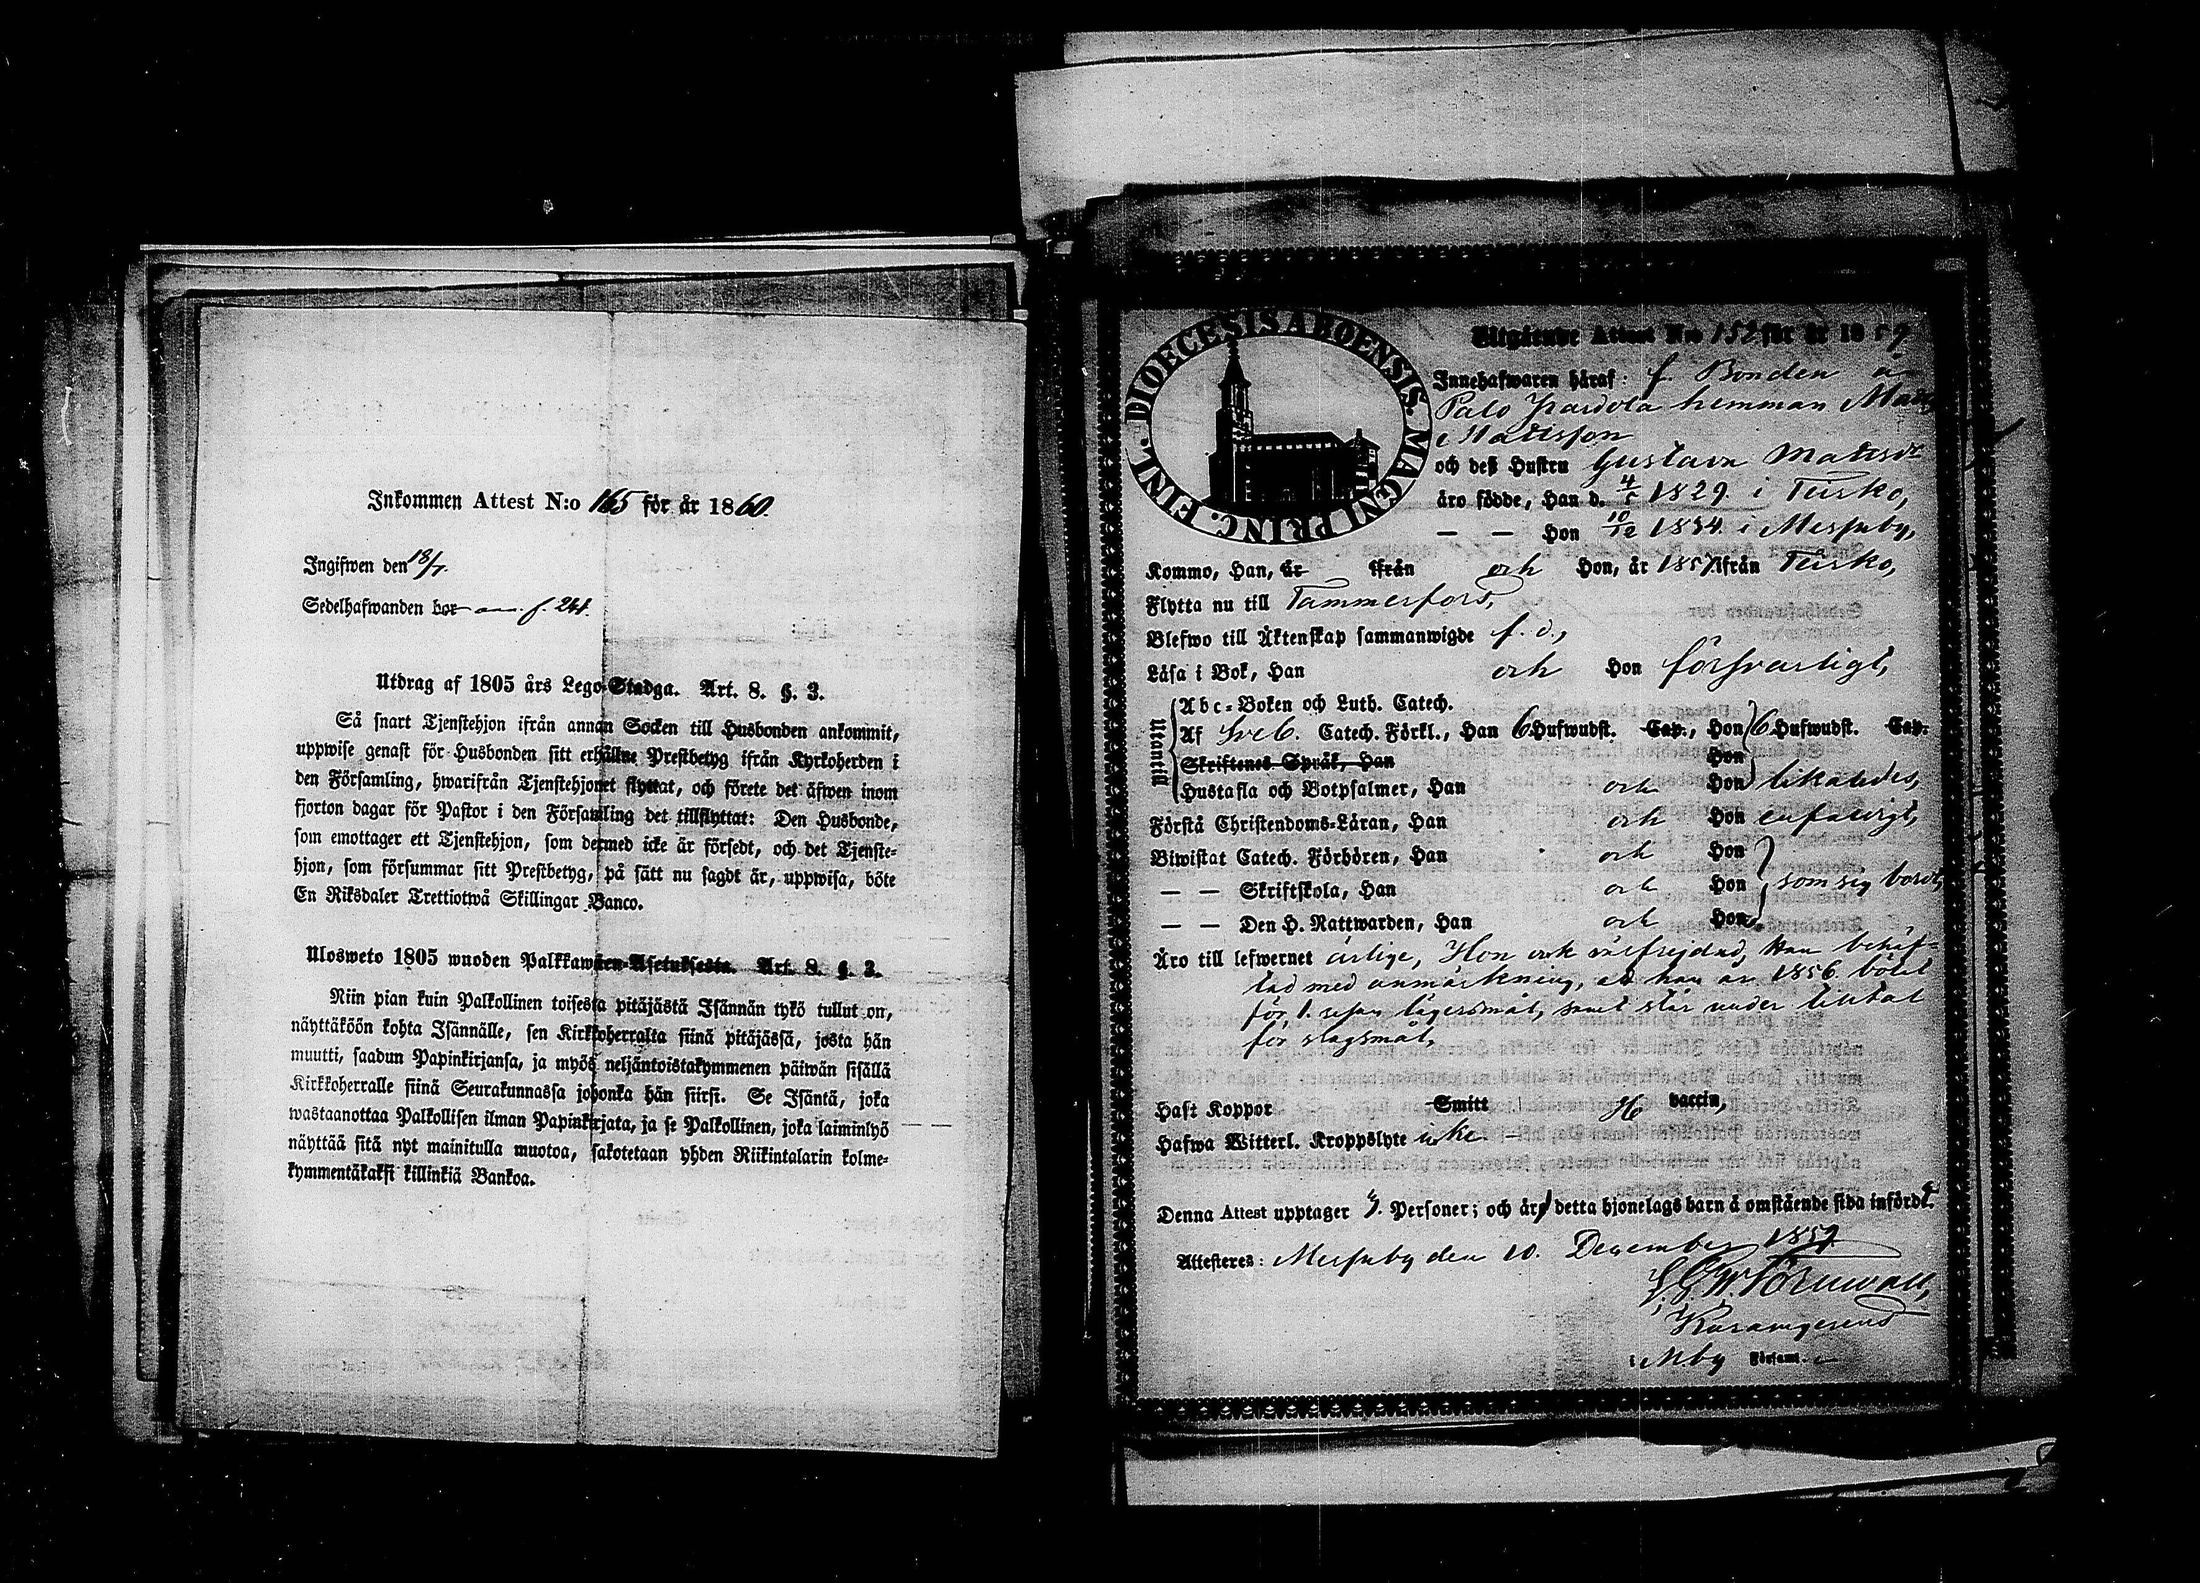 Inkommen Attest N:o 165 för år 1860.
Ingifwen den 18/7.
Sedelhafwanden bor f. 241.
Utdrag af 1805 års Lego-Stadga. Art. 8. §. 3.
Så snart Tjenstehjon ifrån annan Socken till Husbonden ankommit,
uppwise genast för Husbonden sitt erhållne Prestbetyg ifrån Kyrkoherden i
den Församling, hwarifrån Tjenstehjonet flyttat, och förete det äfwen inom
fjorton dagar för Pastor i den Församling det tillflyttat: Den Husbonde,
som emottager ett Tjenstehjon, som dermed icke är försedt, och det Tjenste-
hjon, som försummar sitt Prestbetyg, på sätt nu sagdt är, uppwisa, böte
En Riksdaler Trettiotwå Skillingar Banco.
Ulosweto 1805 wuoden Palkkawäen-Asetuksesta. Art. 8. §. 3.
Niin pian kuin Palkollinen toisesta pitäjästä Isännän tykö tullut on,
näyttäköön kohta Isännälle, sen Kirkkoherralta siinä pitäjässä, josta hän
muutti, saadun Papinkirjansa, ja myös neljäntoistakymmenen päiwän sisällä
Kirkkoherralle siinä Seurakunnassa johonka hän siirsi. Se Isäntä, joka
wastaanottaa Palkollisen ilman Papinkirjata, ja se Palkollinen, joka laiminlyö
näyttää sitä nyt mainitulla muotoa, sakotetaan yhden Riikintalarin kolme-
kymmentäkaksi killinkiä Bankoa.
DIOECESIS ABOENSIS. MAGNI PRINC. FINL.
Utgående Attest N:o 152 för år 1859
Innehafwaren häraf: f. Bonden å
Palo hemman Matts
Mattsson
och deß Hustru Gustava Mattsdr
äro födde, Han d. 4/5 1829. i Teisko,
— — Hon 10/12 1834. i Messuby,
Kommo, Han, år ifrån och Hon, år 1857 ifrån Teisko,
Flytta nu till Tammerfors,
Blefwo till Äktenskap sammanwigde f. d.,
Läsa i Bok, Han och Hon försvarligt,
Utantill
Abc-Boken och Luth. Catech.
Af Sveb. Catech. Förkl., Han 6 Hufwudst. Cap., Hon 6 Hufwudst. Cap.
Skriftenes Språk, Han Hon
Hustafla och Botpsalmer, Han och Hon likaledes,
Förstå Christendoms-Läran, Han och Hon enfaldigt,
Biwistat Catech. Förhören, Han och Hon
— — Skriftskola, Han och Hon som sig bordt,
— — Den H. Nattwarden, Han och Hon
Äro till lefwernet ärlige, Hon ock välfrejdad, Han behäf-
tad med anmärkning, att han år 1856 bötat
för 1. resan lägersmål, samt står under tilltal
för slagsmål,
Haft Koppor Smitt vaccin,
Hafwa Witterl. Kroppslyte icke
Denna Attest upptager Personer; och är detta hjonelags barn å omstående sida införde.
Attesteres: Messuby den 10. December 1859
Törnwall,
i M.by Församl.